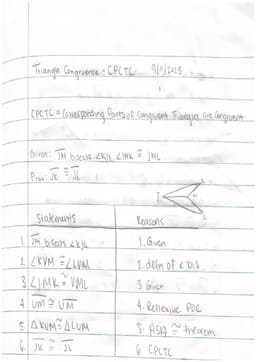 Triangle Congruence - CPCTC 9/11/2025
CPCTC = Corresponding Parts of Congruent Triangles are Congruent
Given: JM bisects <KJL, <JMK ≅ JML
Prov: JK ≅ JL
J
L
Statements Reasons
1. JM bisects <KJL 1. Given
2. <KVM ≅ <LVM 2. defn of < bis
3. <JMK ≅ VML 3. Given
4. UM ≅ UM 4. Reflexive POC
5. ΔKUM ≅ ΔLUM 5. ASA ≅ theorem
6. JK ≅ JL 6. CPCTC